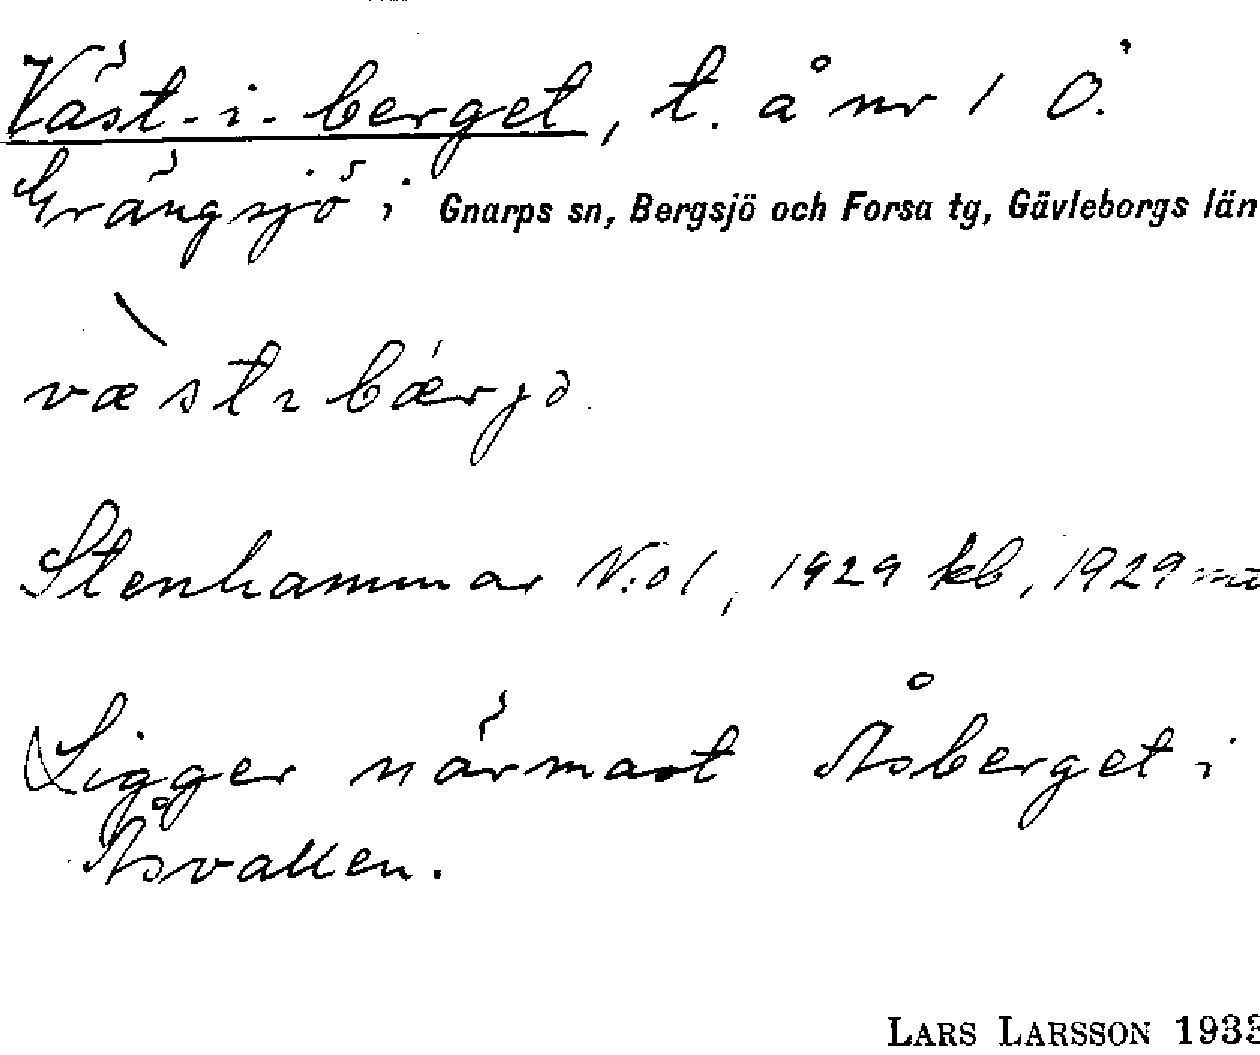 Väst-i-berget, t. å nr 1 Ö.
Grängsjö i Gnarps sn, Bergsjö och Forsa tg, Gävleborgs län
Stenhammar N:o 1, 1929 kb, 1929
Ligger närmast Åsberget i
Åsvallen.
LARS LARSSON 1933